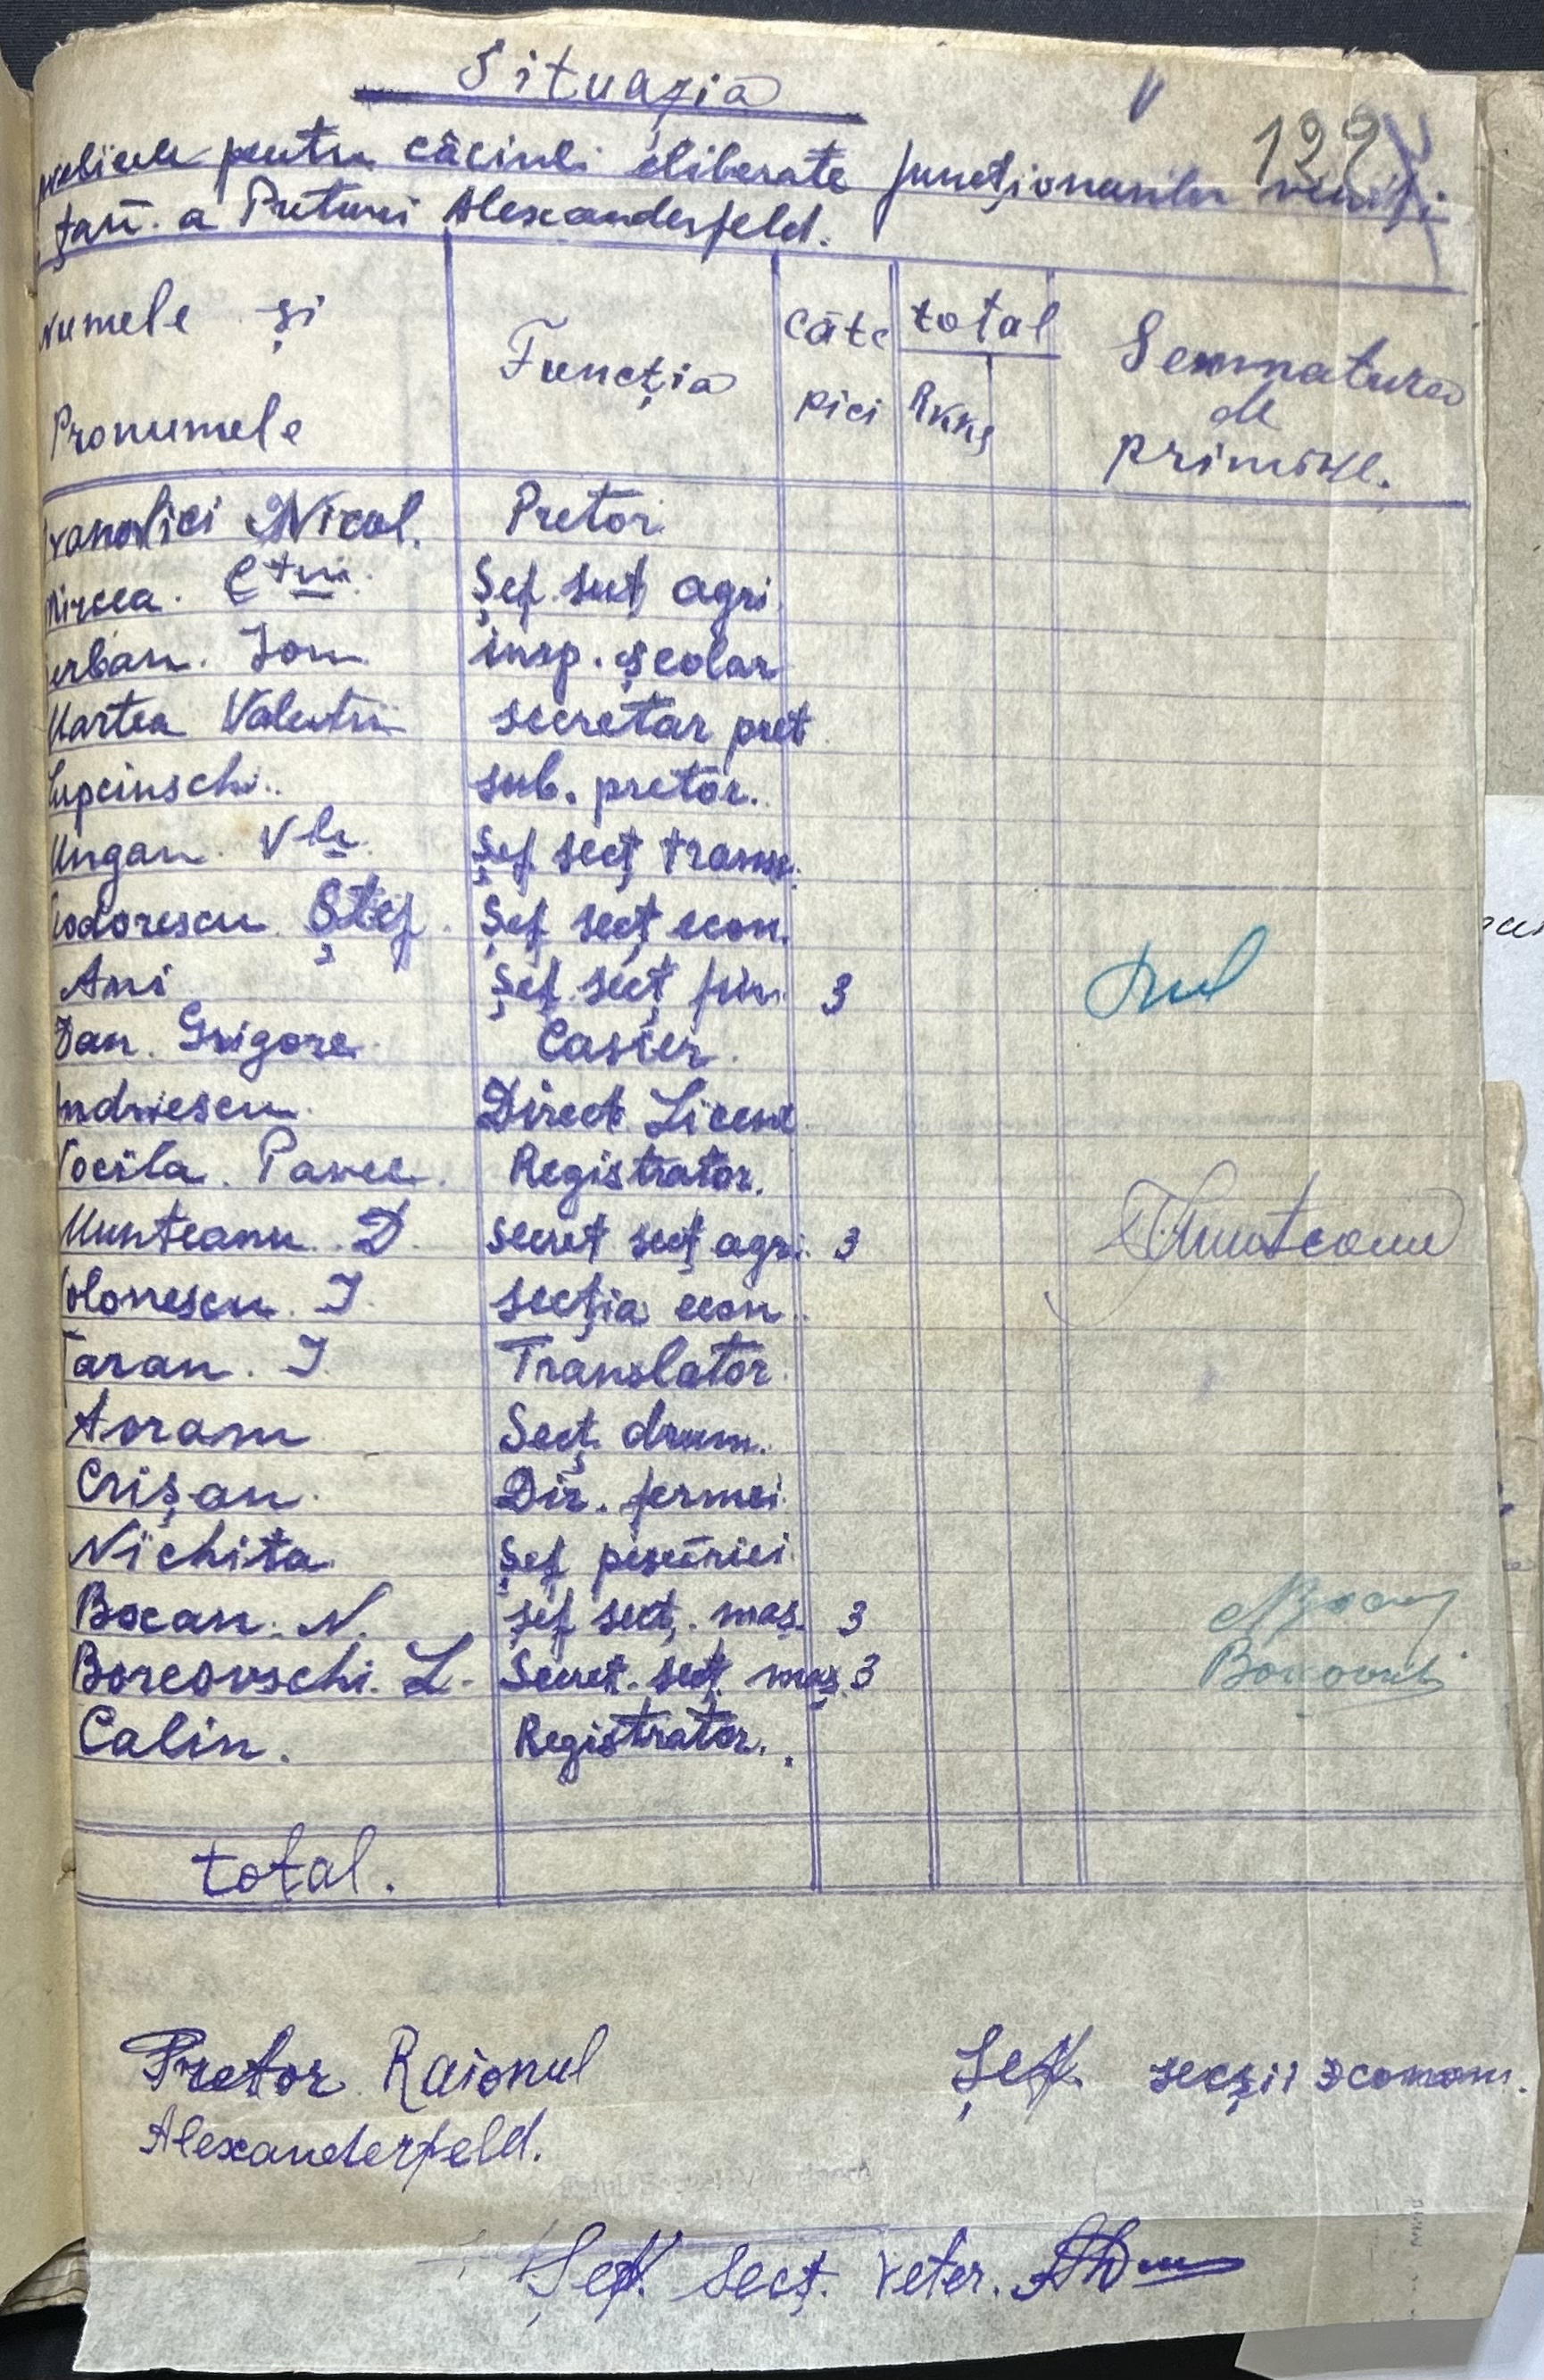 Situația
122
pentru căciuli eliberate funcționarilor veniți
țară a Preturii Alexanderfeld.
Numele și Pronumele | Funcția | Câte pici | total Rkkş | Semnatura de primire.
Nicol. | Pretor
Mircea. C-tin. | Șef. secț agri
erban. Ion | insp. școlar
Martea Valentin | secretar pret
Lupcinschi.. | sub. pretor.
Ungan. Vl. | Șef secț transp.
eodorescu Ștef. | Șef secț econ.
Ani | Șef. secț fin. | 3
Dan. Grigore | Casier.
Andriescu. | Direct Licenl
Vocila. Pavel. | Registrator.
Munteanu. D. | secret secț agri. | 3 | Munteanu
olonescu. I. | secția econ.
Taran. I. | Translator.
Avram | Secț. drum.
Crișan. | Dir. fermei.
Nichita. | Șef pescăriei.
Bocan. N. | șef secț. maș. | 3
Borcovschi. L. | Secret. secț. maș. | 3 | Borcovschi
Calin. | Registrator..
total.
Pretor Raionul | Șef. secții econom.
Alexanderfeld.
Șef. Secț. Veter.